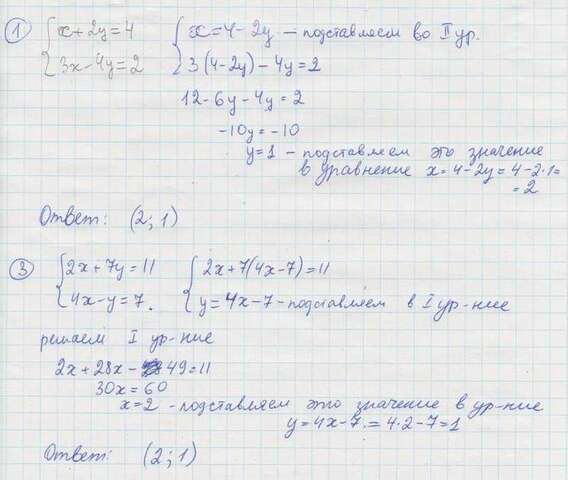 1 { x+2y=4 { x=4-2y – подставляем во II ур.
3x-4y=2 3(4-2y)-4y=2
12-6y-4y=2
-10y=-10
y=1 – подставляем это значение
в уравнение x=4-2y=4-2·1=
=2
Ответ: (2;1)
3 { 2x+7y=11 { 2x+7(4x-7)=11
4x-y=7. y=4x-7 – подставляем в I ур-ние
решаем I ур-ние
2x+28x-49=11
30x=60
x=2 - подставляем это значение в ур-ние
y=4x-7=4·2-7=1
Ответ: (2;1)